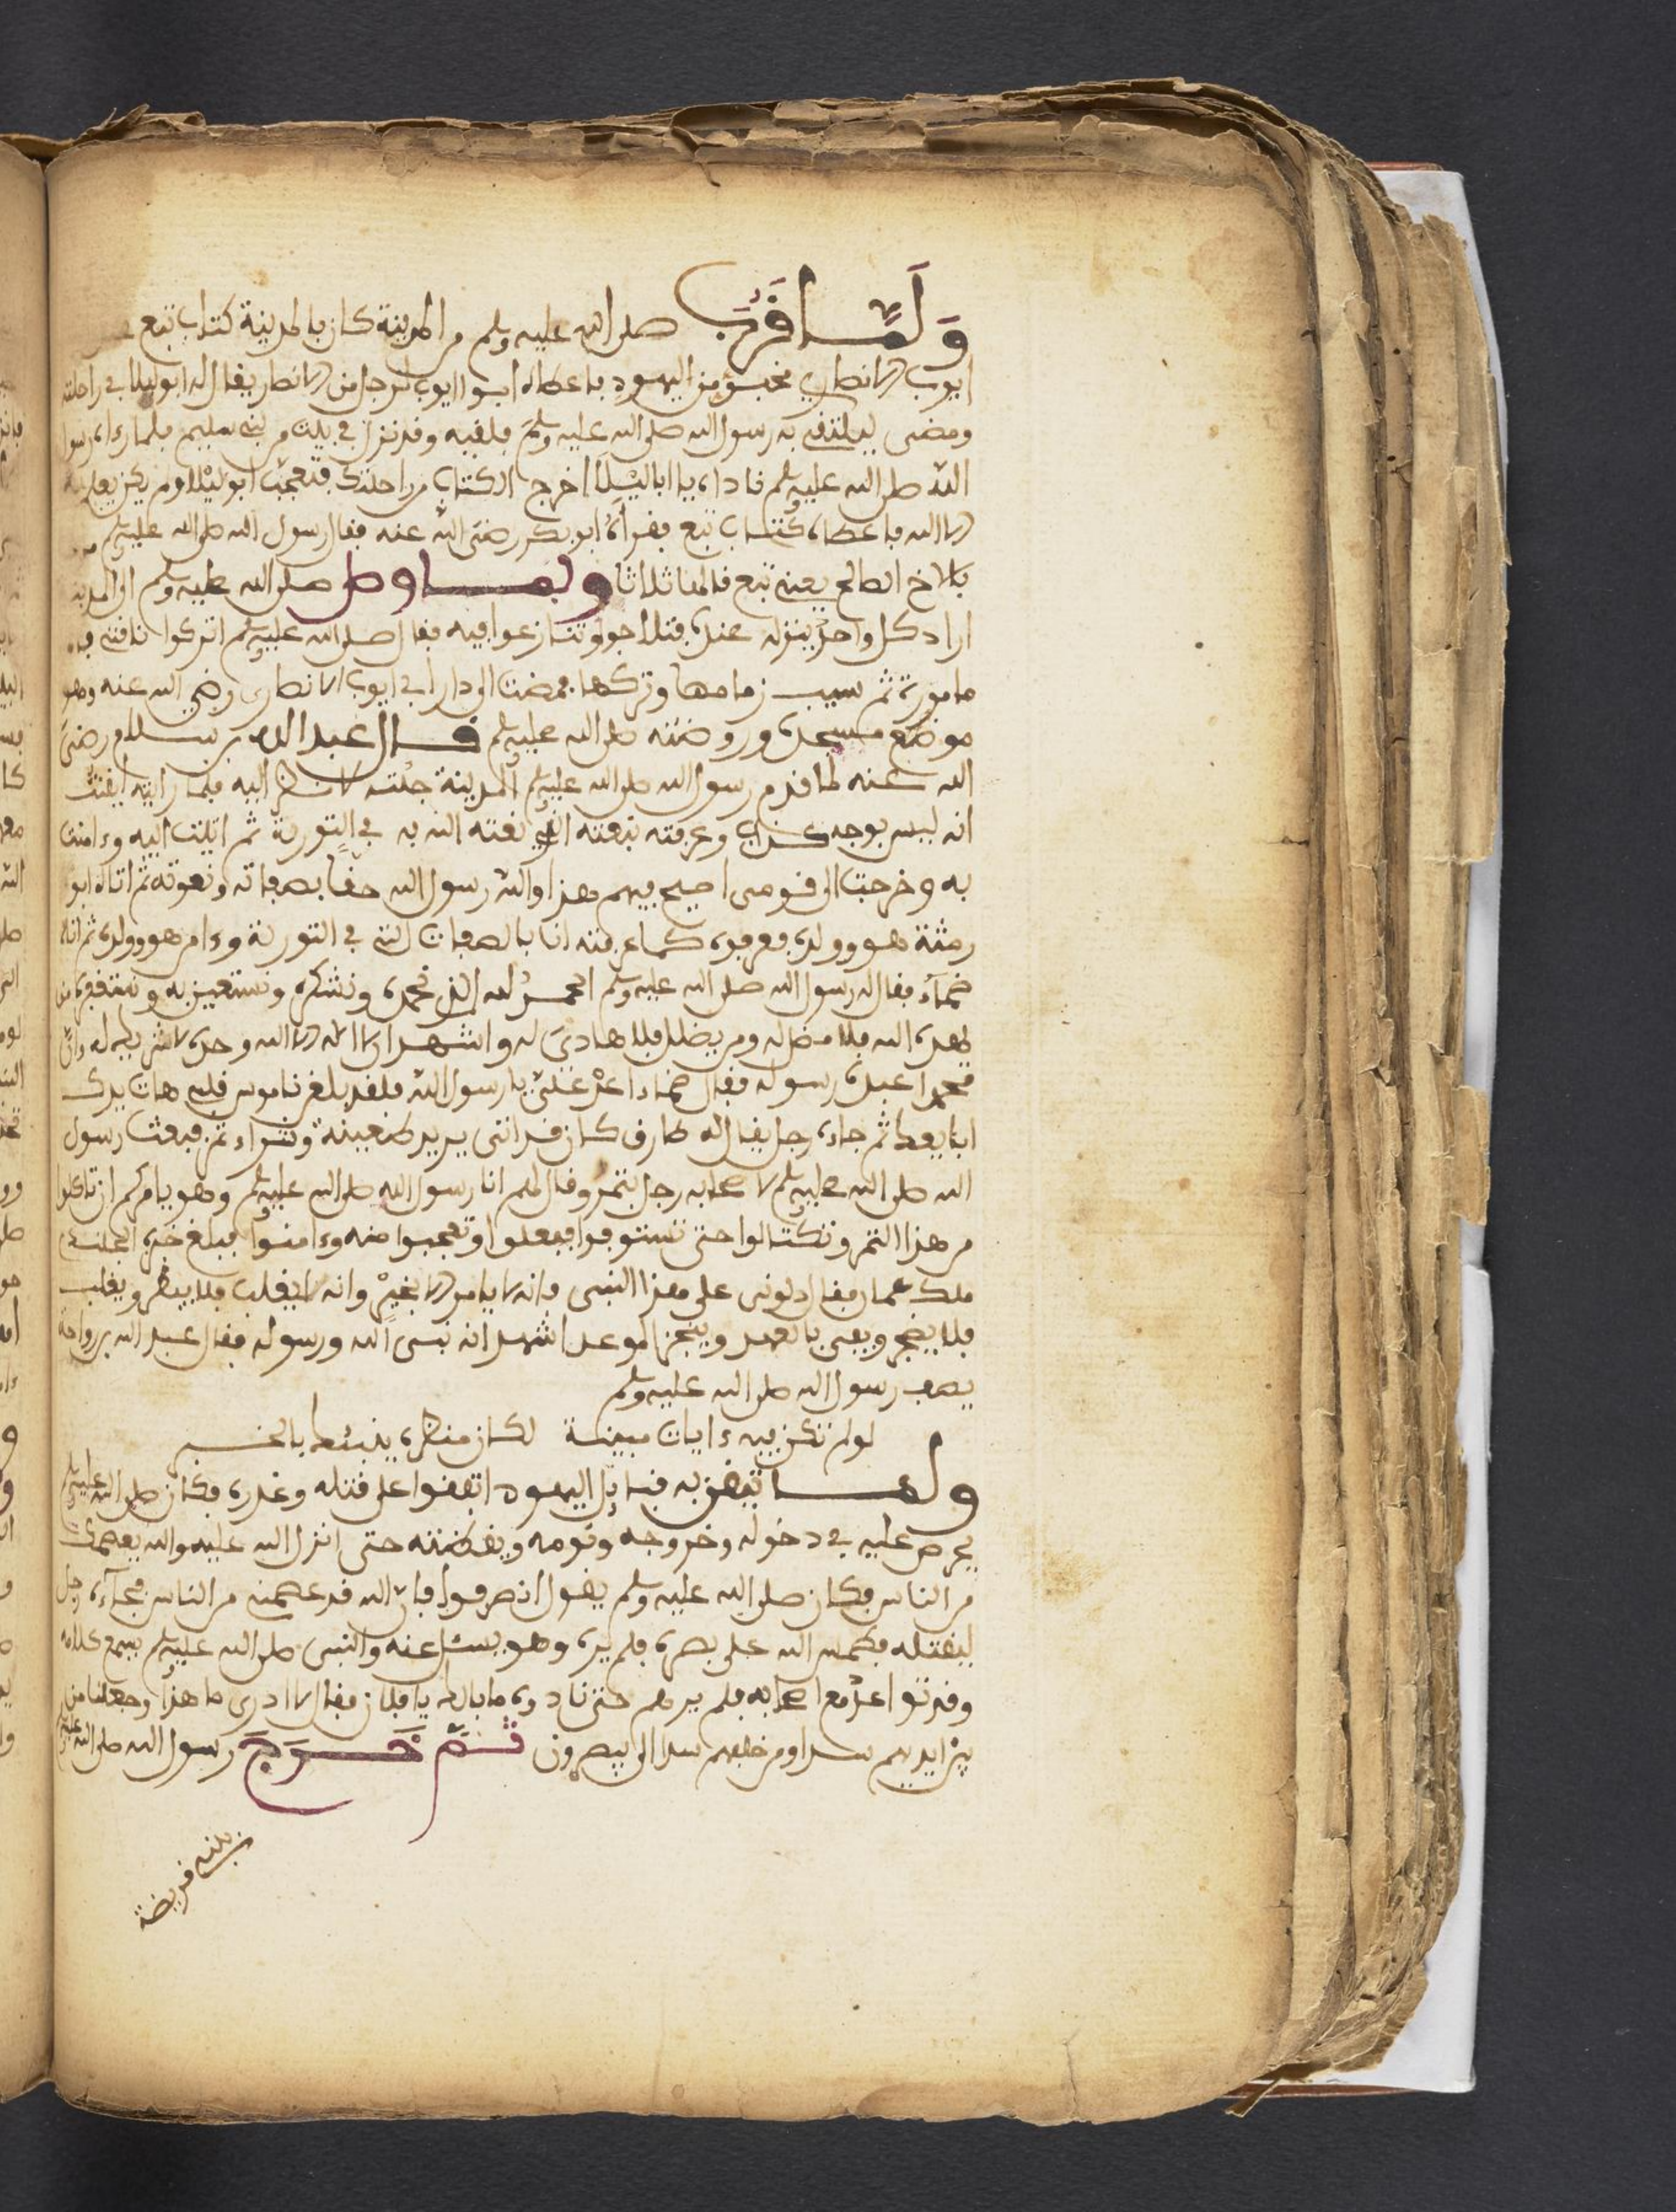 وَلَمَّا قَرُبَ صلى الله عليه وسلم من المدينة كان بالمدينة كتاب تبع
ايوب الانصاري مخبوٌ من اليهود فاعطاه ابوا ايوب لرجل من الانصار يقال له ابو ليلا في راحلته
ومضى ليلتقي به رسول الله صلى الله عليه وسلم فلقيه وقد نزل في بيت من بني سليم فلما رءاه رسول
الله صلى الله عليه وسلم ناداه يا ابا ليلا اخرج الكتاب من راحلتك فتعجب ابو ليلا ولم يكن يعلم به
الا الله فاعطاه كتاب تبع فقرأه ابو بكر رضي الله عنه فقال رسول الله صلى الله عليه وسلم
بالاخ الصالح يعني تبع قالها ثلاثا ولما وصل صلى الله عليه وسلم الى المدينة
اراد كل واحد ينزله عنده فتلاجوا وتنازعوا فيه فقال صلى الله عليه وسلم اتركوا ناقتي
مامورة ثم سيب زمامها وتركها فمضت الى دار ابي ايوب الانصاري رضي الله عنه وهو
موضع مسجده وروضته صلى الله عليه وسلم قال عبد الله بن سلام رضي
الله عنه لما قدم رسول الله صلى الله عليه وسلم المدينة جئته لانظر اليه فلما رايته ايقنت
انه ليس بوجه كذاب وعرفته بنعته الذي نعته الله به في التورية ثم اتيت اليه وءامنت
به وخرجت الى قومي اصيح فيهم هذا والله رسول الله حقا بصفاته ونعوته ثم اتاه ابو
رمثة هو وولده فعرفوه كما عرفته انا بالصفات التي في التورية وءامن هو وولده ثم اتاه
ضماد فقال له رسول الله صلى الله عليه وسلم الحمد لله الذي نحمده ونشكره ونستعين به ونستغفره من
يهده الله فلا مضل له ومن يضلل فلا هادي له واشهد ان لا اله الا الله وحده لا شريك له وان
محمدا عبده رسوله فقال ضماد اعد علي يا رسول الله فلقد بلغن ناموس قلبي هات يدك
ابايعك ثم جاءه رجل يقال له طارق كان قد اتى يريد ظعينة وشراء تمر فبعث رسول
الله صلى الله عليه وسلم لاصحابه رجل بتمر وقال لهم انا رسول رسول الله صلى الله عليه وسلم وهو يامركم ان تاكلوا
من هذا التمر وتكتالوا حتى تستوفوا ففعلوا وتعجبوا منه وءامنوا فبلغ خبره الجلندي
ملك عمان فقال دلوني على هذا النبي فانه لا يامر الا بخير وانه لا يغلب فلا ينظر ويغلب
فلا يضجر ويفي بالعهد وينجز الموعد اشهد انه نبي الله ورسوله فقال عبد الله بن رواحة
يصف رسول الله صلى الله عليه وسلم
لو لم تكن فيه ءايات مبينة لكان منظره ينبئك بالخبر
ولما تيقن به قبائل اليهود اتفقوا على قتله وغدره فكان صلى الله عليه وسلم
يحرص عليه في دخوله وخروجه ونومه ويقظته حتى انزل الله عليه والله يعصمك
من الناس فكان صلى الله عليه وسلم يقول انصرفوا فان الله قد عصمني من الناس فجاءه رجل
ليقتله فطمس الله على بصره فلم يره وهو يسئل عنه والنبي صلى الله عليه وسلم يسمع كلامه
وقد تواعد مع اصحابه فلم يرهم حتى نادوه ما بالك يا فلان فقال لا ادري ما هذا وجعلنا من
بين ايديهم سدا ومن خلفهم سدا الى يبصرون ثُمَّ خَرَجَ رسول الله صلى الله عليه وسلم
بني قريضة